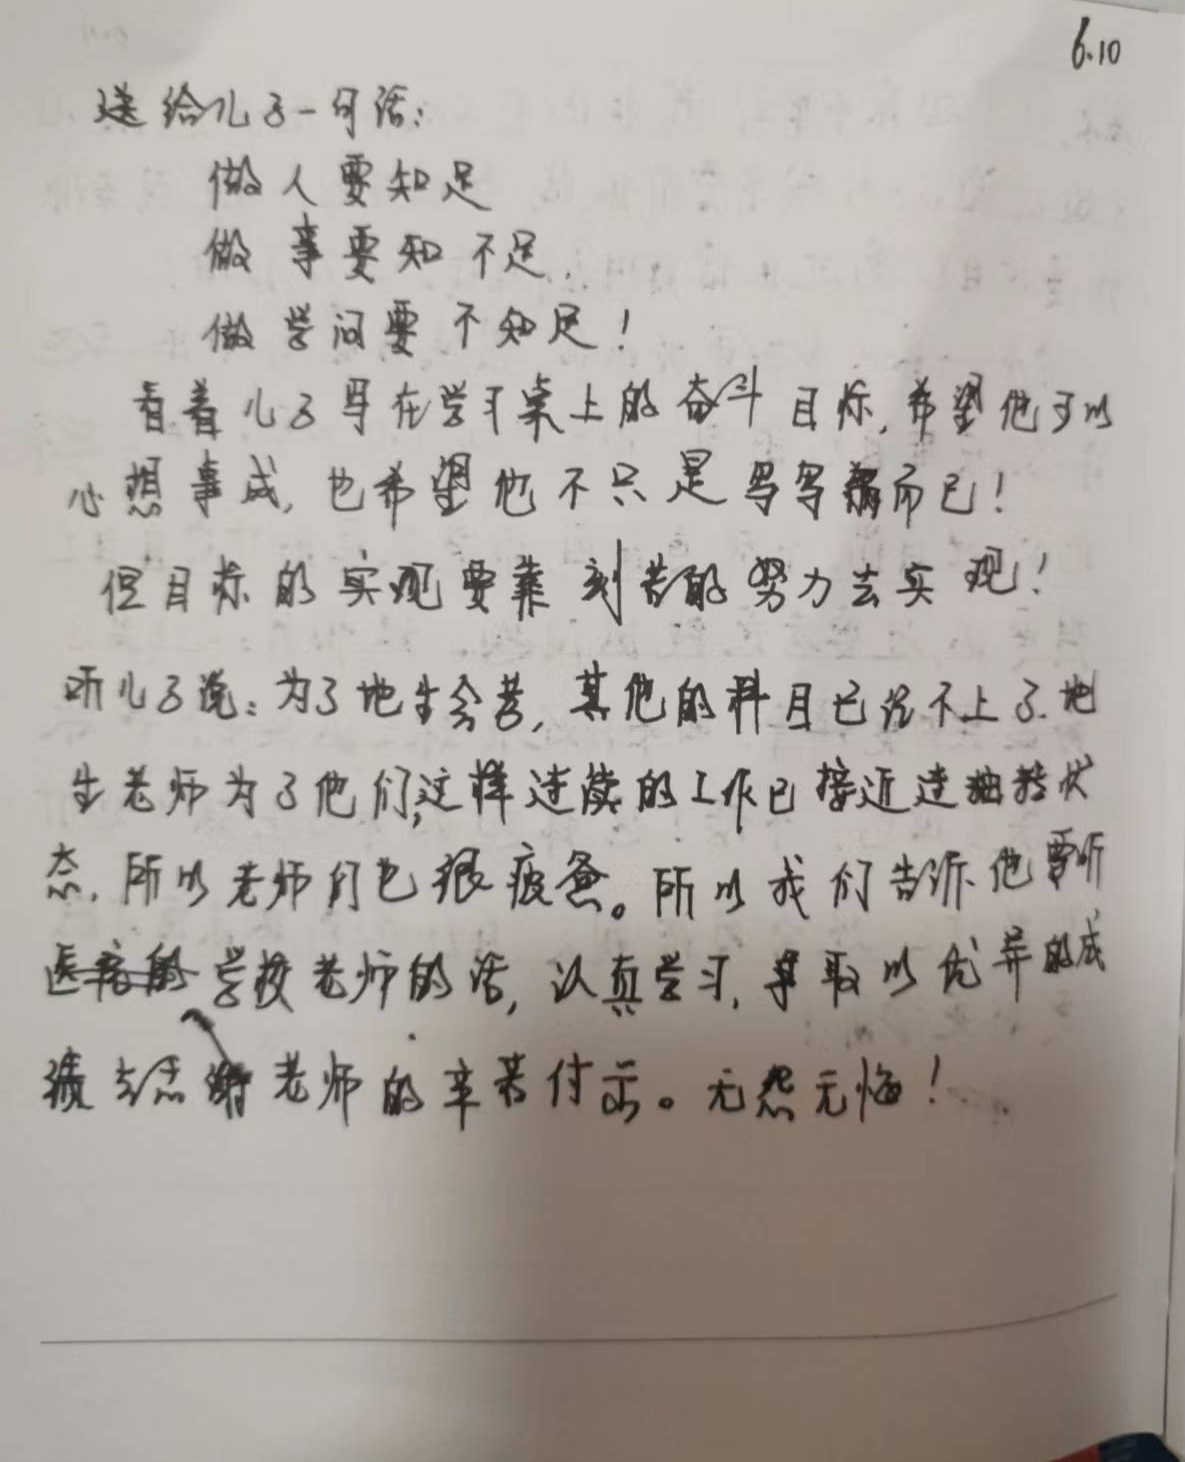 6.10
送给儿子一句话:
做人要知足
做事要知不足,
做学问要不知足!
看着儿子写在学习桌上的奋斗目标,希望他可以
心想事成,也希望他不只是写写而已!
但目标的实现要靠刻苦的努力去实现!
听儿子说:为了地生会考,其他的科目已说不上了.地
生老师为了他们,这样连续的工作已接近连轴转状
态,所以老师们也很疲惫。所以我们告诉他要听
学校老师的话,认真学习,争取以优异的成
绩去感谢老师的辛苦付出。无怨无悔!